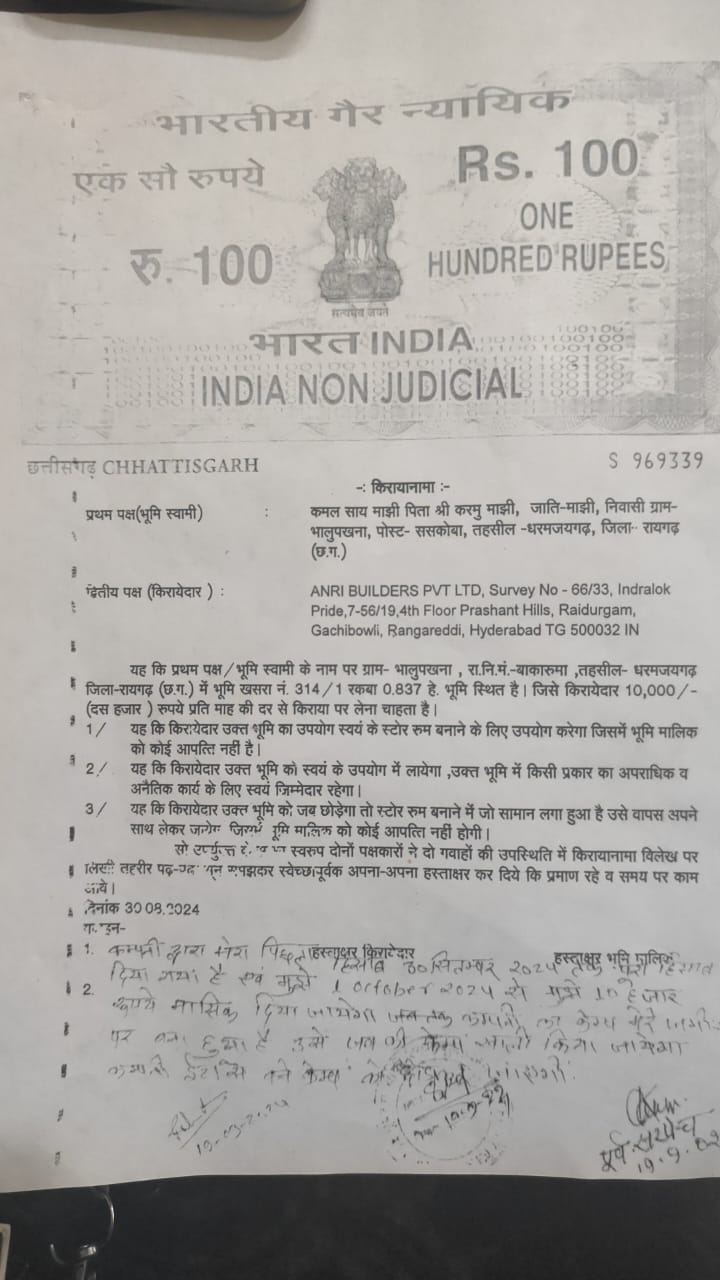 भारतीय गैर न्यायिक
एक सौ रुपये
Rs. 100
रु. 100
ONE
HUNDRED RUPEES
सत्यमेव जयते
भारत INDIA
INDIA NON JUDICIAL
छत्तीसगढ़ CHHATTISGARH
S 969339
-: किरायानामा :-
प्रथम पक्ष(भूमि स्वामी) : कमल साय माझी पिता श्री करमु माझी, जाति-माझी, निवासी ग्राम-
भालुपखना, पोस्ट- ससकोबा, तहसील -धरमजयगढ़, जिला- रायगढ़
(छ.ग.)
द्वितीय पक्ष (किरायेदार ) : ANRI BUILDERS PVT LTD, Survey No - 66/33, Indralok
Pride,7-56/19,4th Floor Prashant Hills, Raidurgam,
Gachibowli, Rangareddi, Hyderabad TG 500032 IN
यह कि प्रथम पक्ष/भूमि स्वामी के नाम पर ग्राम- भालुपखना , रा.नि.मं.-बाकारुमा ,तहसील- धरमजयगढ़
जिला-रायगढ़ (छ.ग.) में भूमि खसरा नं. 314/1 रकबा 0.837 हे. भूमि स्थित है। जिसे किरायेदार 10,000/-
(दस हजार ) रुपये प्रति माह की दर से किराया पर लेना चाहता है।
1/ यह कि किरायेदार उक्त भूमि का उपयोग स्वयं के स्टोर रुम बनाने के लिए उपयोग करेगा जिसमें भूमि मालिक
को कोई आपत्ति नहीं है।
2/ यह कि किरायेदार उक्त भूमि को स्वयं के उपयोग में लायेगा ,उक्त भूमि में किसी प्रकार का अपराधिक व
अनैतिक कार्य के लिए स्वयं जिम्मेदार रहेगा।
3/ यह कि किरायेदार उक्त भूमि को जब छोड़ेगा तो स्टोर रुम बनाने में जो सामान लगा हुआ है उसे वापस अपने
साथ लेकर भूमि मालिक को कोई आपत्ति नहीं होगी।
स्वरुप दोनों पक्षकारों ने दो गवाहों की उपस्थिति में किरायानामा विलेख पर
तहरीर स्वेच्छापूर्वक अपना-अपना हस्ताक्षर कर दिये कि प्रमाण रहे व समय पर काम
आये।
दिनांक 30.08.2024
हस्ताक्षर किरायेदार
हस्ताक्षर भूमि मालिक
1. कम्पनी द्वारा मेरा पिछला 30 सितम्बर 2024
दिया गया है एवं मुझे 1 October 2024 से मुझे 10 हजार
2. रुपये मासिक दिया जायेगा जब तक कम्पनी का केम्प मेरे
पर बना हुआ है उसे किया जायेगा
पूर्व सरपंच